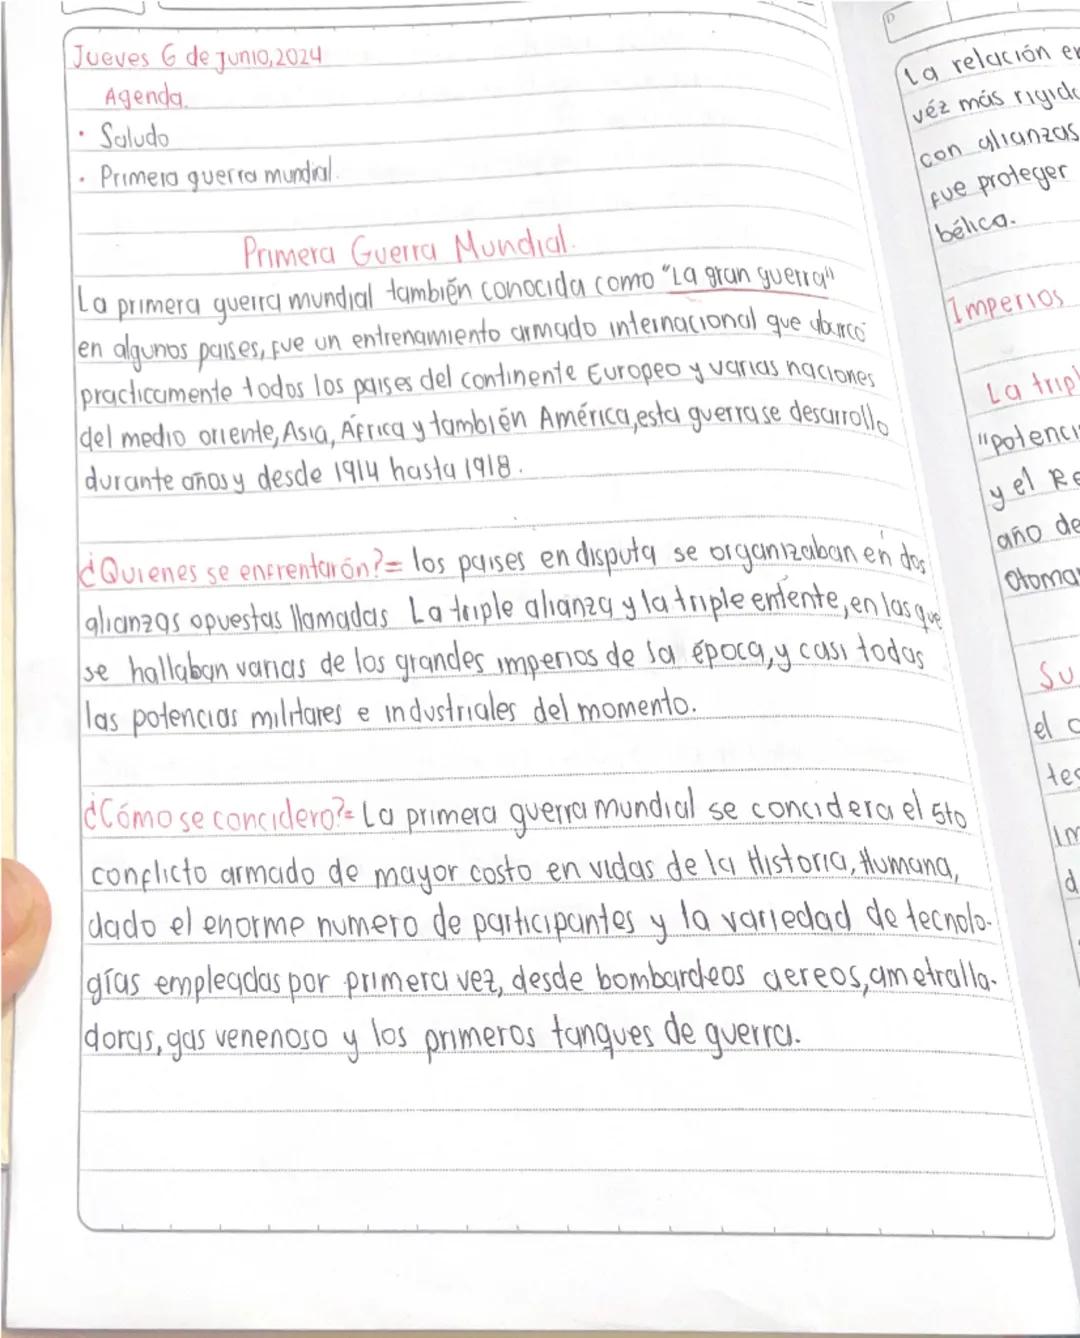 Jueves 6 de junio, 2024
Agenda.
· Saludo
· Primera guerra mundial.
Primera Guerra Mundial.
La primera guerra mundial también conocida como "La gran guerra"
en algunos paises, fue un entrenamiento armado internacional que abarcó
practicamente todos los paises del continente Europeo y varias naciones
del medio oriente, Asia, África y también América, esta guerra se desarrollo
durante años y desde 1914 hasta 1918.
¿Quienes se enfrentarón?= los paises en disputa se organizaban en dos
alianzas opuestas llamadas La triple alianza y la triple entente, en las que
se hallaban varias de los grandes imperios de la época, y casi todas
las potencias militares e industriales del momento.
¿Cómo se concidero?= La primera guerra mundial se concidera el 5to
conflicto armado de mayor costo en vidas de la Historia, Humana,
dado el enorme numero de participantes y la variedad de tecnolo-
gías empleadas por primera vez, desde bombardeos aereos, ametralla-
doras, gas venenoso y los primeros tanques de guerra.
La relación
véz más
con alianzas
fue proteger
bélica.
Imperios
La
y el
año de
Su
el